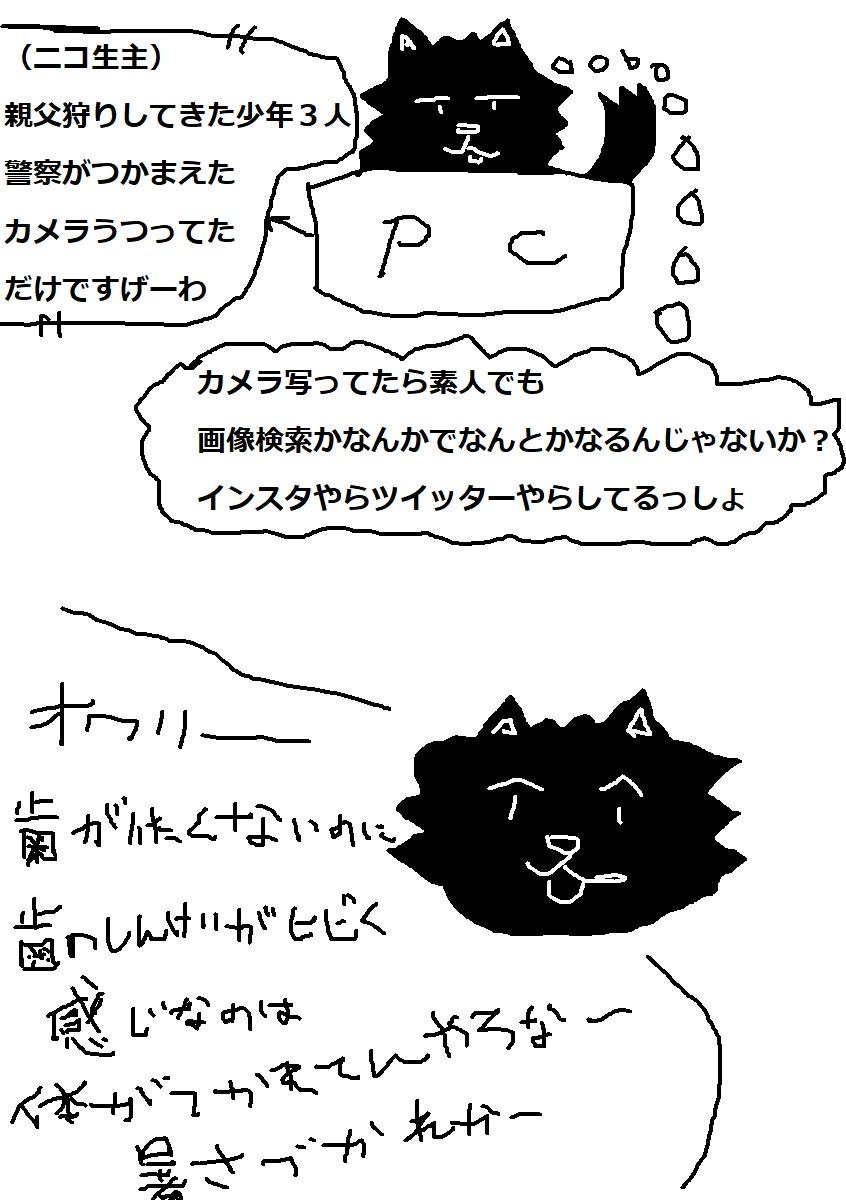 （ニコ生主）
親父狩りしてきた少年３人
警察がつかまえた
カメラうつってた
だけですげーわ
PC
カメラ写ってたら素人でも
画像検索かなんかでなんとかなるんじゃないか？
インスタやらツイッターやらしてるっしょ
オワリー
歯がいたくナないのに
歯のしんけいがヒビく
感じなのは
体がつかれてんやろなー
暑さづかれかー